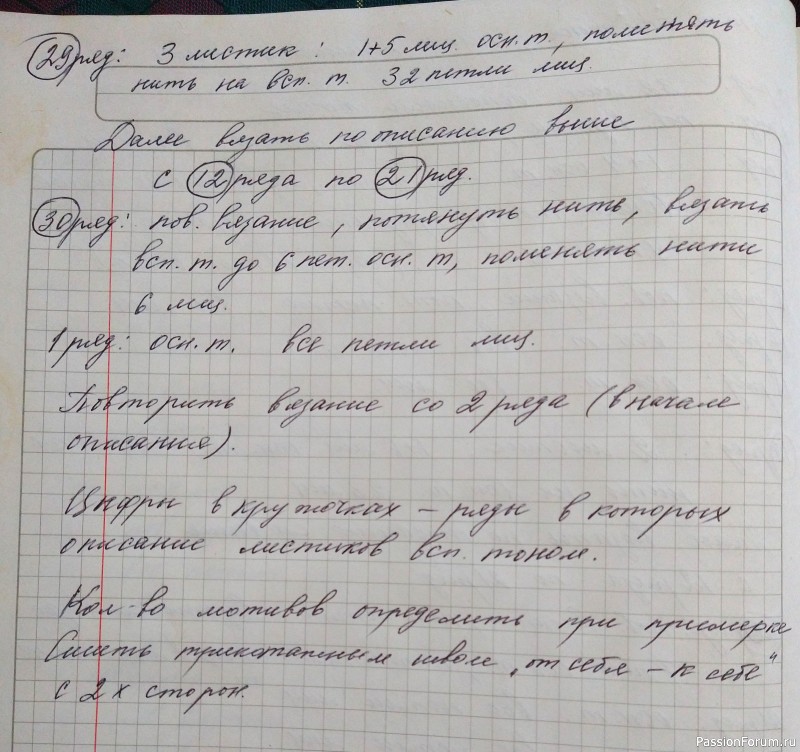 29 ряд: 3 листик: 1+5 лиц. осн.т., поменять
нить на всп. т. 32 петли лиц.
Далее вязать по описанию выше
с 12 ряда по 21 ряд.
30 ряд: пов. вязание, потянуть нить, вязать
всп. т. до 6 пет. осн. т, поменять нити
6 лиц.
1 ряд: осн. т. все петли лиц.
Повторить вязание со 2 ряда (в начале
описания).
Цифры в кружочках – ряды в которых
описание листиков всп. тоном.
Кол-во мотивов определить при примерке
Сшить трикотажным швом „от себя – к себе"
с 2х сторон.
PassionForum.ru